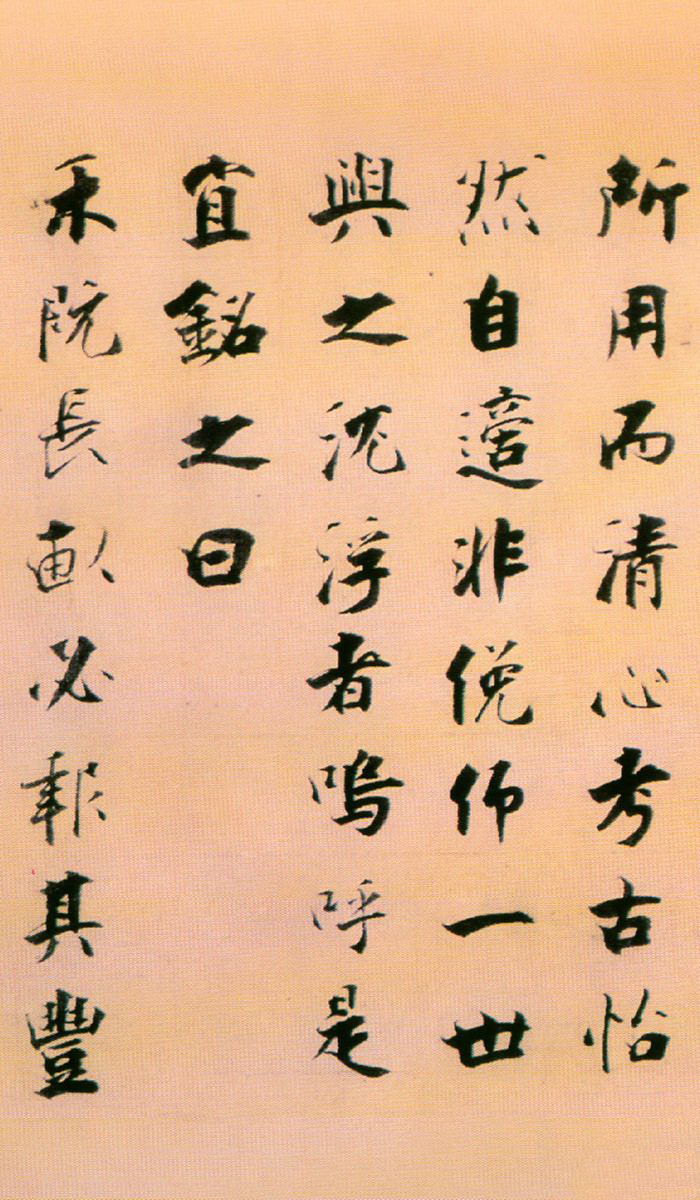 所用而清心考古怡
然自適非俛仰一世
與之沈浮者嗚呼是
宜銘之曰
禾既長畝必報其豐